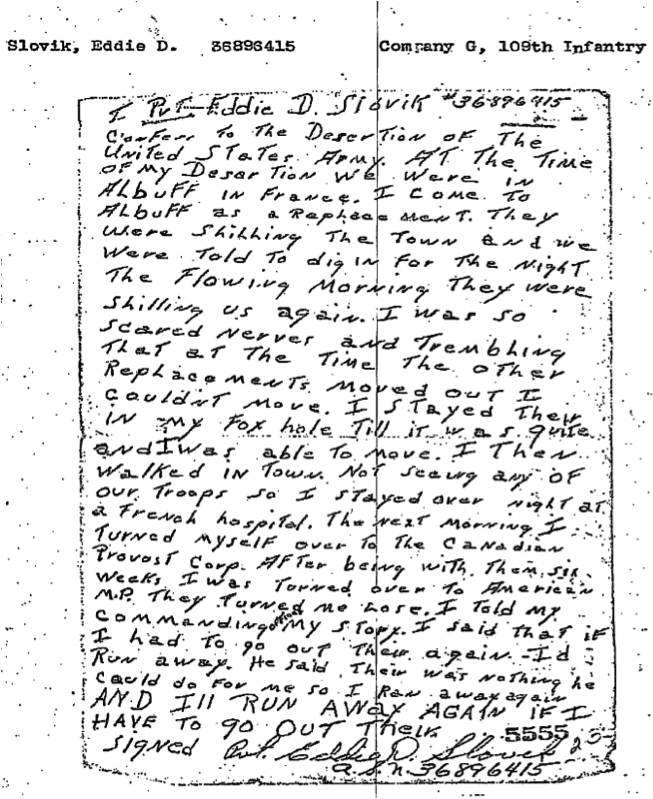 Slovik, Eddie D. 36896415 Company G, 109th Infantry
I Pvt. Eddie D. Slovik #36896415
Confess to The Desertion of The
United States Army. AT The Time
of my Desertion we were in
Albuff in France. I come to
Albuff as a Replacement. They
were shilling The Town and we
were Told to dig in for The Night
The Flowing Morning They were
shilling us again. I was so
scared nerves and Trembling
That at The Time The other
Replacements moved out I
couldnt move. I stayed Their
in my fox hole Till it was quite
and I was able to move. I Then
walked in Town. Not seeing any of
our Troops so I stayed over night at
a French hospital. The next morning I
Turned myself over to The Canadian
Provost Corp. After being with Them six
weeks I was Turned over To American
M.P. They Turned me lose. I Told my
commanding officer my story. I said that if
I had To go out Their again Id
Run away. He said Their was nothing he
could do for me so I Ran away again
AND ILL RUN AWAY AGAIN IF I
HAVE To go OUT Their 5555
Signed Pvt. Eddie D. Slovik
A.S.N. 36896415